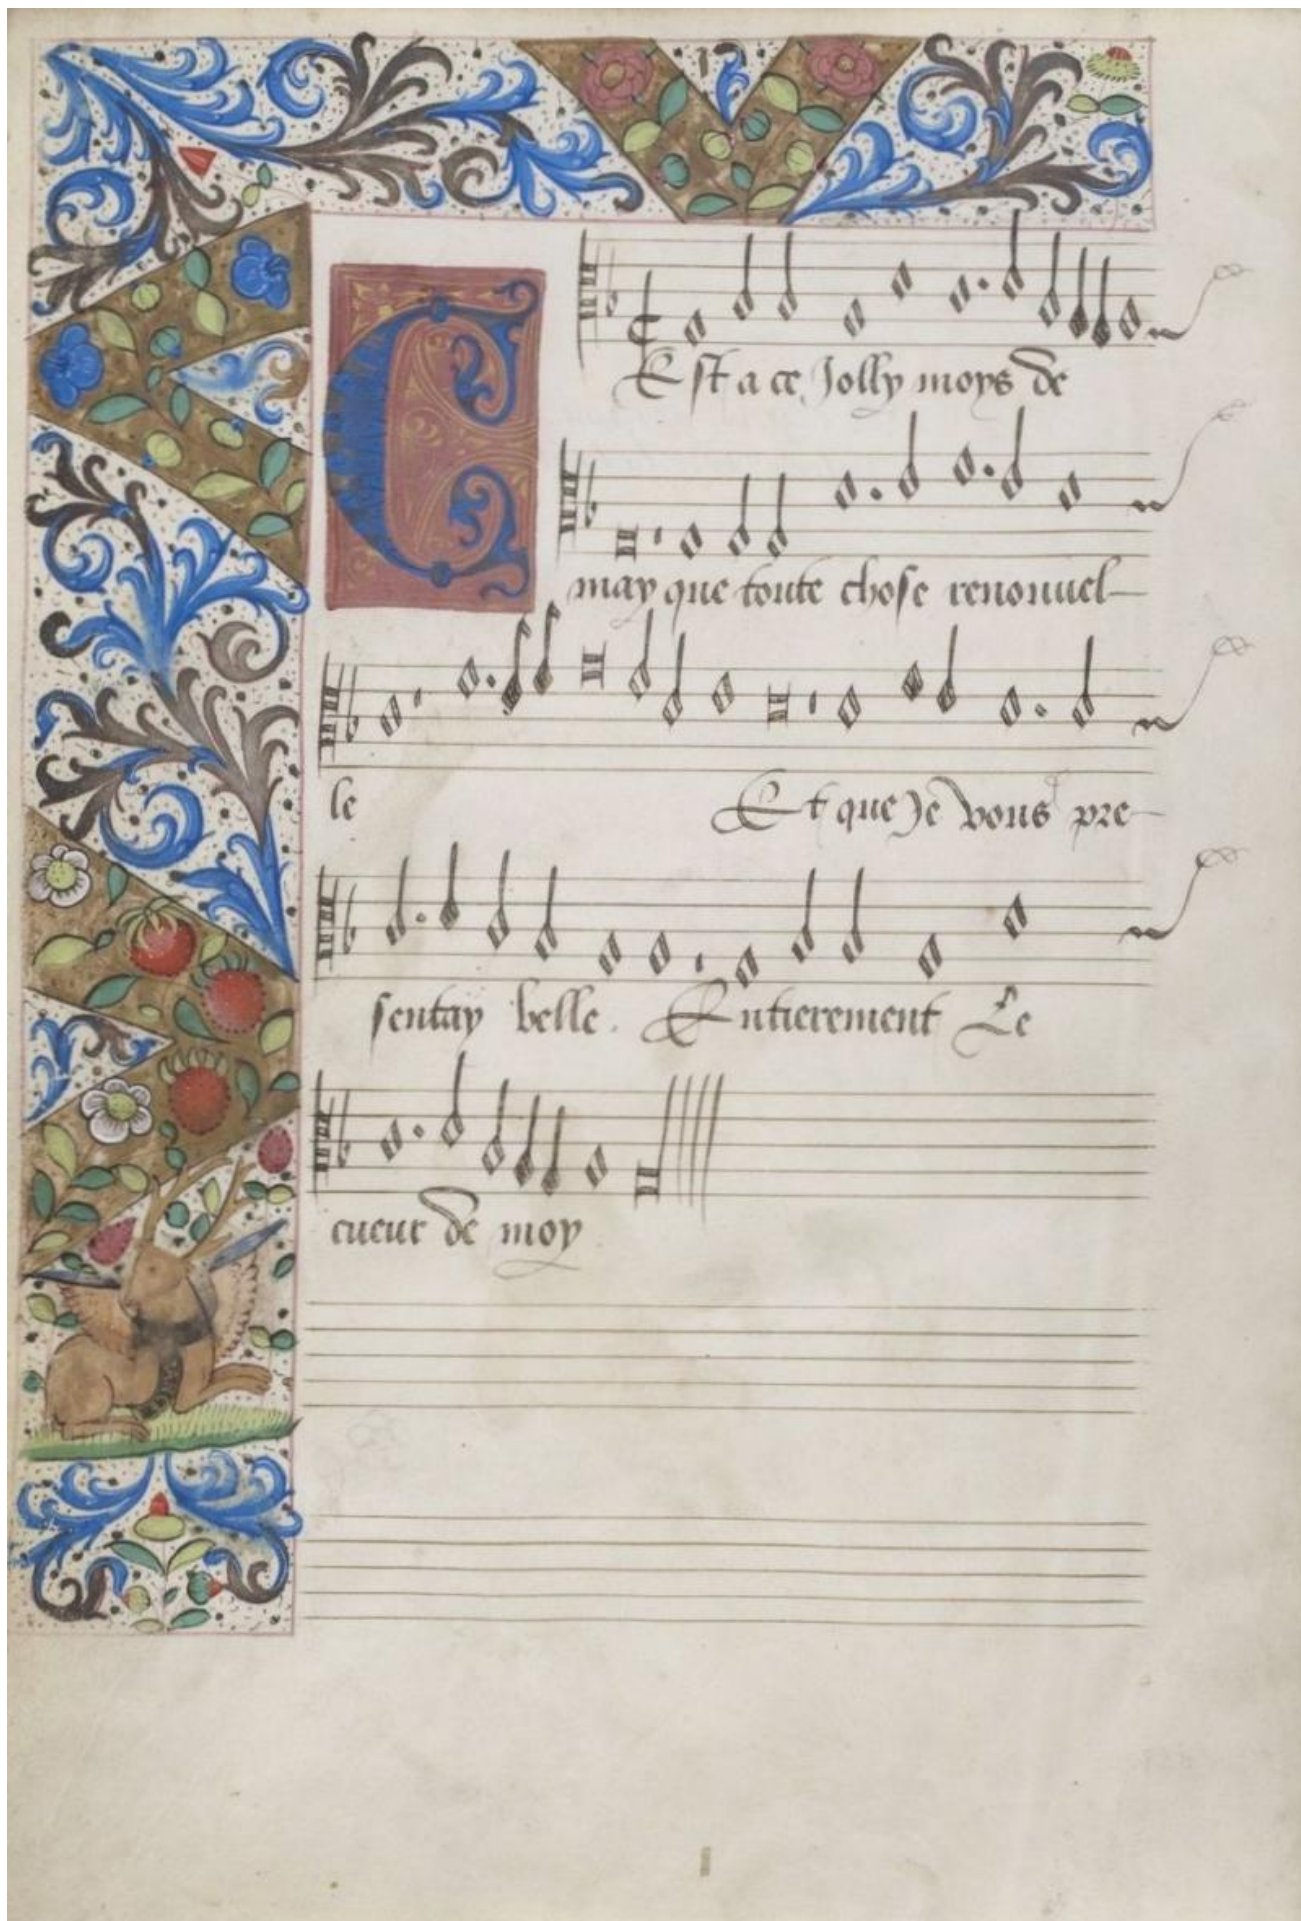 CEst a ce Jolly moys de
may que toute chose renouuel-
le Et que Je vous pre-
sentay belle. Entierement Le
cueur de moy